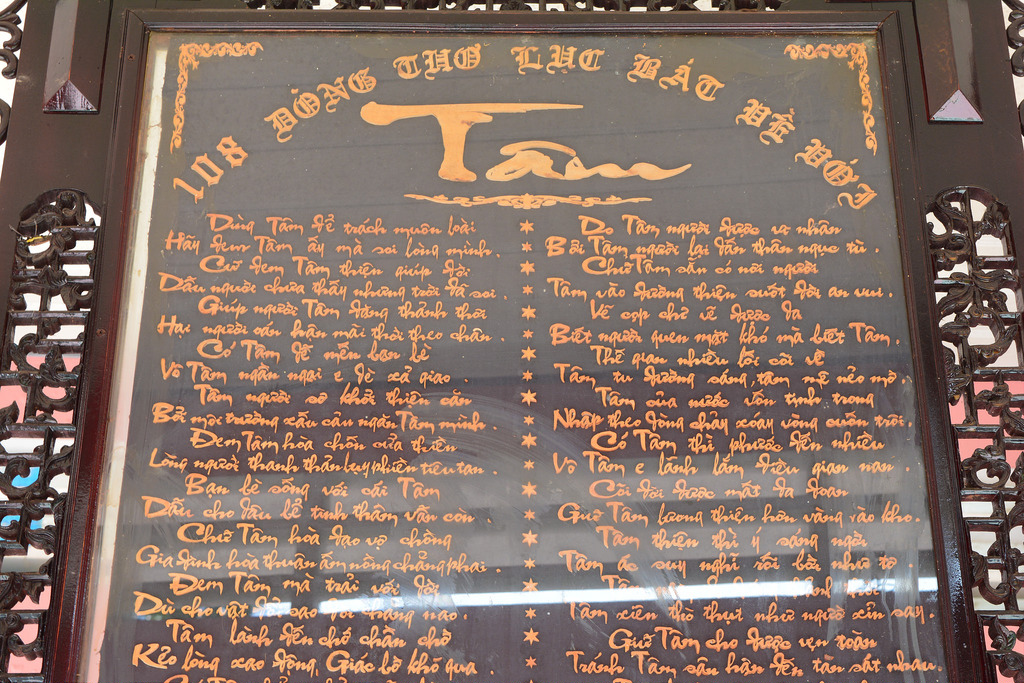 108 DÒNG THƠ LỤC BÁT VỀ VỚI
Tâm
Dùng Tâm để trách muôn loài
Hãy đem Tâm ấy mà soi lòng mình.
Cứ đem Tâm thiện giúp đời
Dẫu người chưa thấy nhưng trời đã soi.
Giúp người Tâm đặng thảnh thơi
Hại người oán hận mãi thời theo chân.
Có Tâm dễ mến bạn bè
Vô Tâm ngần ngại e dè xã giao.
Tâm người sơ khởi thiện căn
Bởi môi trường xấu cản ngăn Tâm mình.
Đem Tâm hòa chốn cửa thiền
Lòng người thanh thản lụy phiền tiêu tan.
Bạn bè sống với cái Tâm
Dẫu cho dâu bể tình thâm vẫn còn.
Chữ Tâm hòa đạo vợ chồng
Gia đình hòa thuận ấm nồng chẳng phai.
Đem Tâm mà trải với đời
Dù cho vật đổi sao dời trăng nào.
Tâm lành đến chớ chần chờ
Kẻo lòng xao động, Giác bờ khó qua
Do Tâm người được vạ nhân
Bởi Tâm người lại dấn thân ngục tù.
Chữ Tâm sẵn có nơi người
Tâm vào đường thiện suốt đời an vui.
Vẽ cọp chỉ vẽ được da
Biết người quen mặt khó mà biết Tâm.
Thế gian nhiều lối cõi về
Tâm tu đường sáng, tâm mê nẻo mờ.
Tâm của nước vốn tịnh trong
Nhập theo dòng chảy xoáy vòng cuốn trôi.
Có Tâm thì phước đến nhiều
Vô Tâm e lãnh lắm điều gian nan.
Cõi đời được mất đa đoan
Giữ Tâm lương thiện hơn vàng vào kho.
Tâm thiện thì ý sáng ngời
Tâm ác suy nghĩ rối bời như tơ.
Tâm
Tâm xiên thò thụt như người xỉn say.
Giữ Tâm cho được vẹn toàn
Tránh Tâm sân hận đến tàn sát nhau.